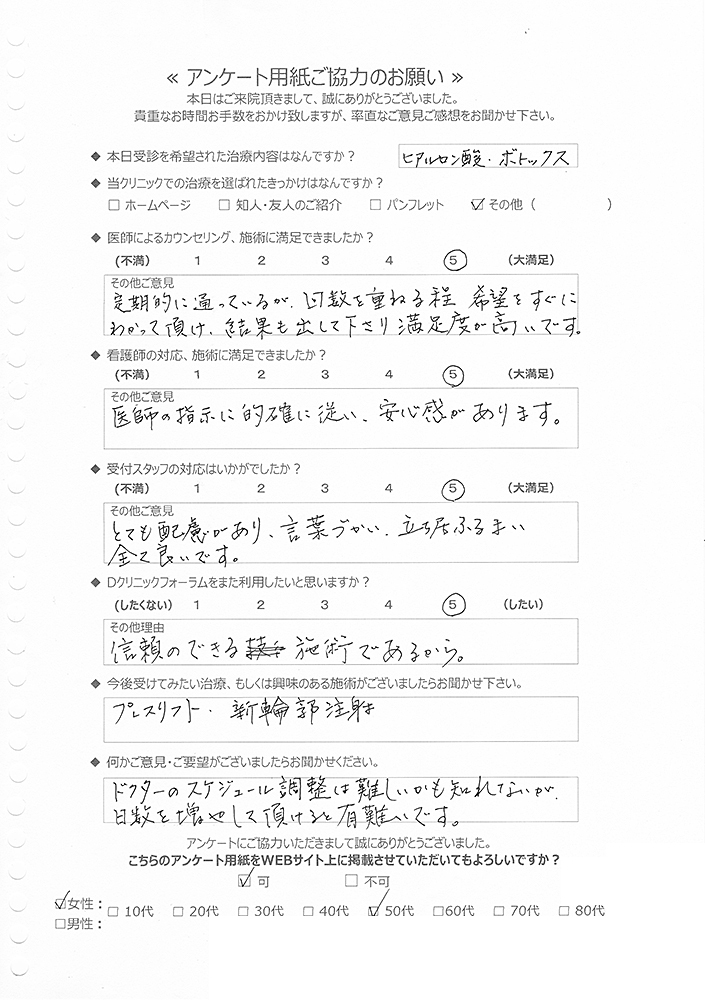 ≪ アンケート用紙ご協力のお願い ≫
本日はご来院頂きまして、誠にありがとうございました。
貴重なお時間お手数をおかけ致しますが、率直なご意見ご感想をお聞かせ下さい。
◆ 本日受診を希望された治療内容はなんですか？ ヒアルロン酸・ボトックス
◆ 当クリニックでの治療を選ばれたきっかけはなんですか？
□ ホームページ □ 知人・友人のご紹介 □ パンフレット ☑ その他（ ）
◆ 医師によるカウンセリング、施術に満足できましたか？
(不満) 1 2 3 4 ⑤ (大満足)
その他ご意見
定期的に通っているが、回数を重ねる程 希望をすぐに
わかって頂け、結果も出して下さり満足度が高いです。
◆ 看護師の対応、施術に満足できましたか？
(不満) 1 2 3 4 ⑤ (大満足)
その他ご意見
医師の指示に的確に従い、安心感があります。
◆ 受付スタッフの対応はいかがでしたか？
(不満) 1 2 3 4 ⑤ (大満足)
その他ご意見
とても配慮があり、言葉づかい、立ち居ふるまい
全て良いです。
◆ Dクリニックフォーラムをまた利用したいと思いますか？
(したくない) 1 2 3 4 ⑤ (したい)
その他理由
信頼のできる 施術であるから。
◆ 今後受けてみたい治療、もしくは興味のある施術がございましたらお聞かせ下さい。
プレスリフト・新輪郭注射
◆ 何かご意見・ご要望がございましたらお聞かせください。
ドクターのスケジュール調整は難しいかも知れないが、
日数を増やして頂けると有難いです。
アンケートにご協力いただきまして誠にありがとうございました。
こちらのアンケート用紙をWEBサイト上に掲載させていただいてもよろしいですか？
☑ 可 □ 不可
☑女性： □ 10代 □ 20代 □ 30代 □ 40代 ☑ 50代 □60代 □ 70代 □ 80代
□男性：